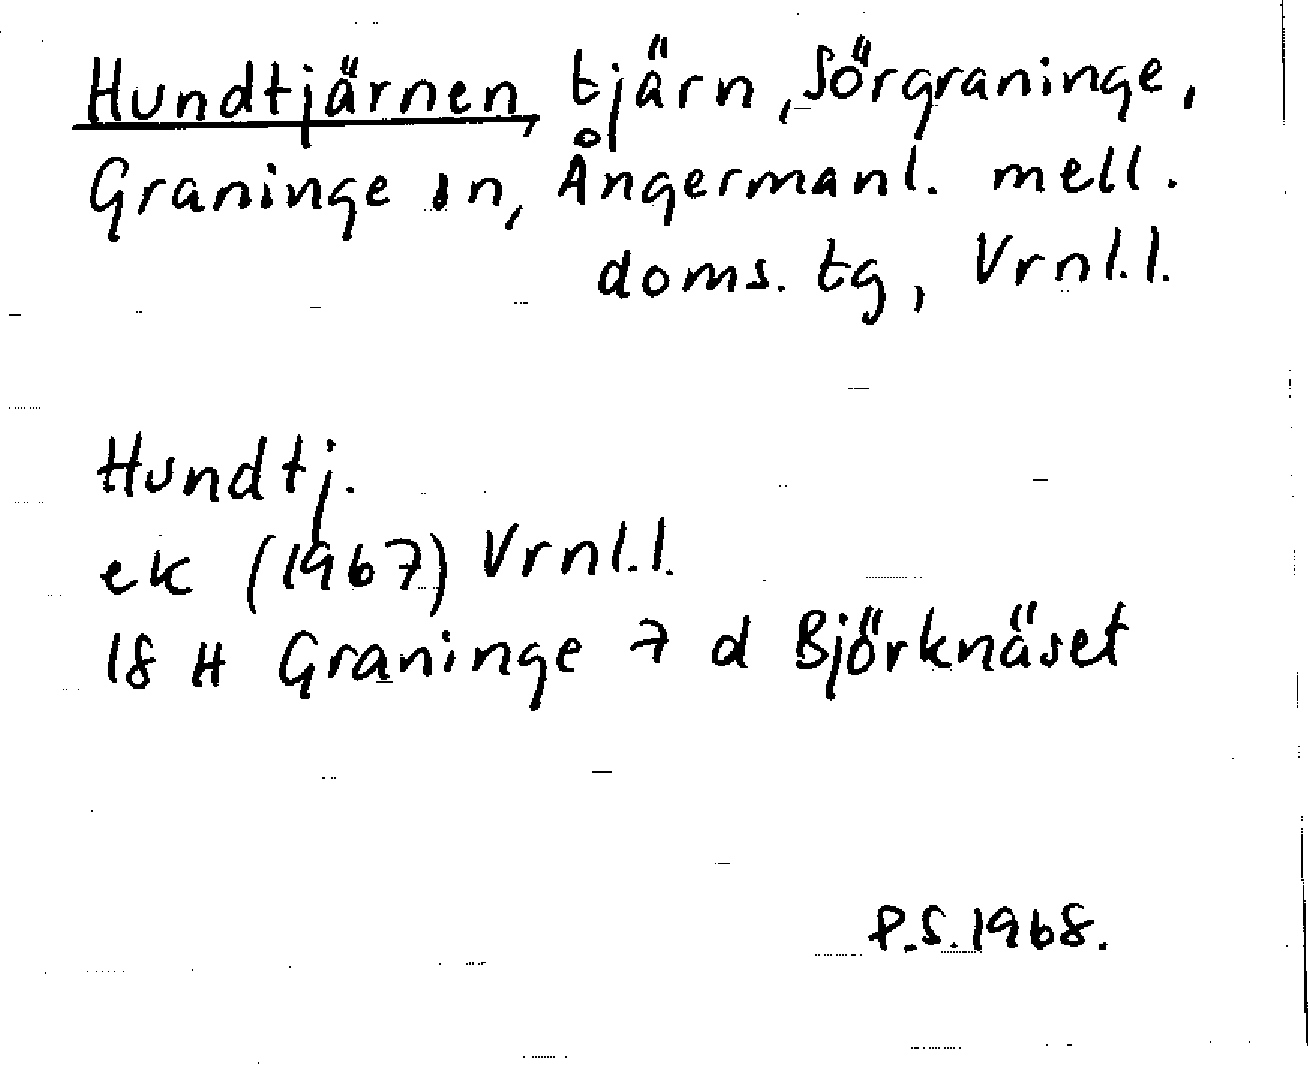 Hundtjärnen, tjärn, Sörgraninge,
Graninge sn, Ångermanl. mell.
doms. tg, Vrnl.l.
Hundtj.
ek (1967) Vrnl.l.
18 H Graninge 7 d Björknäset
P.S. 1968.